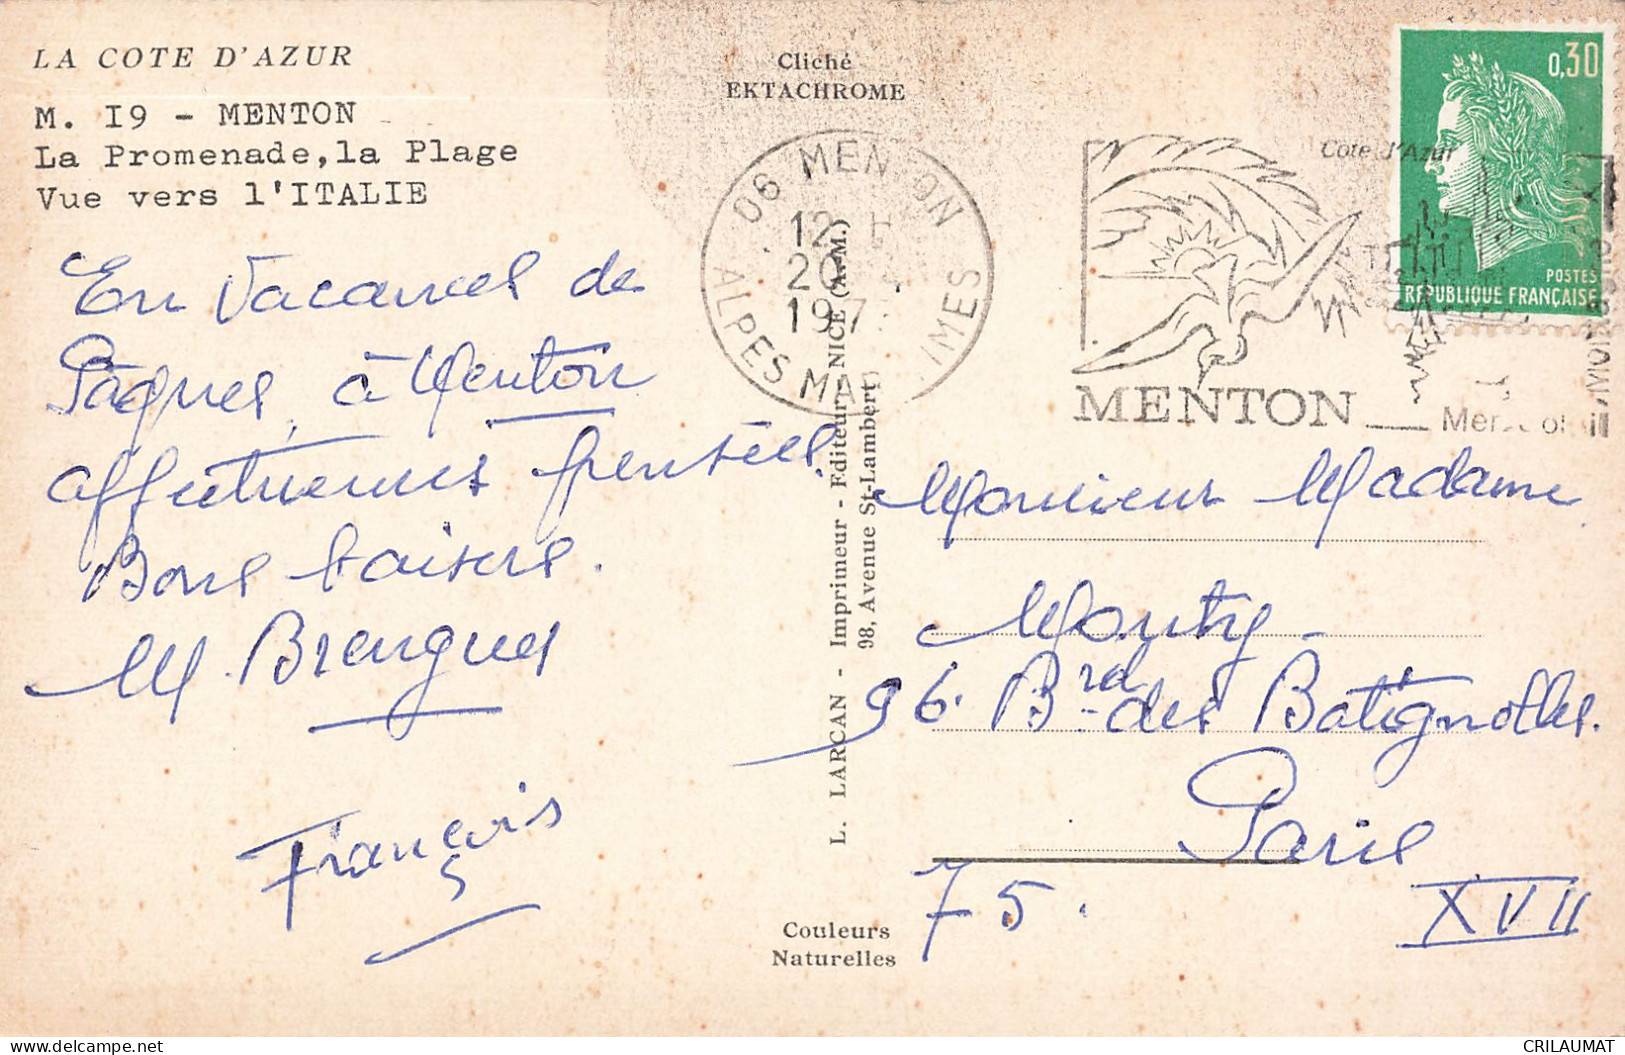 LA COTE D'AZUR
M. I9 - MENTON
La Promenade, la Plage
Vue vers l'ITALIE
Cliché
EKTACHROME
En Vacances de
Pâques, à Menton
affectueuses pensées.
Bons baisers.
M. Brengues
François
L. LARCAN - Imprimeur - Editeur, NICE (A.-M.)
98, Avenue St-Lambert
Couleurs
Naturelles
06 MENTON
12 H
20 - 4
197
ALPES MARITIMES
Côte d'Azur
MENTON
0,30
POSTES
REPUBLIQUE FRANÇAISE
Monsieur Madame
Moutry
96. Brd des Batignolles.
Paris
75.
XVII
CRILAUMAT